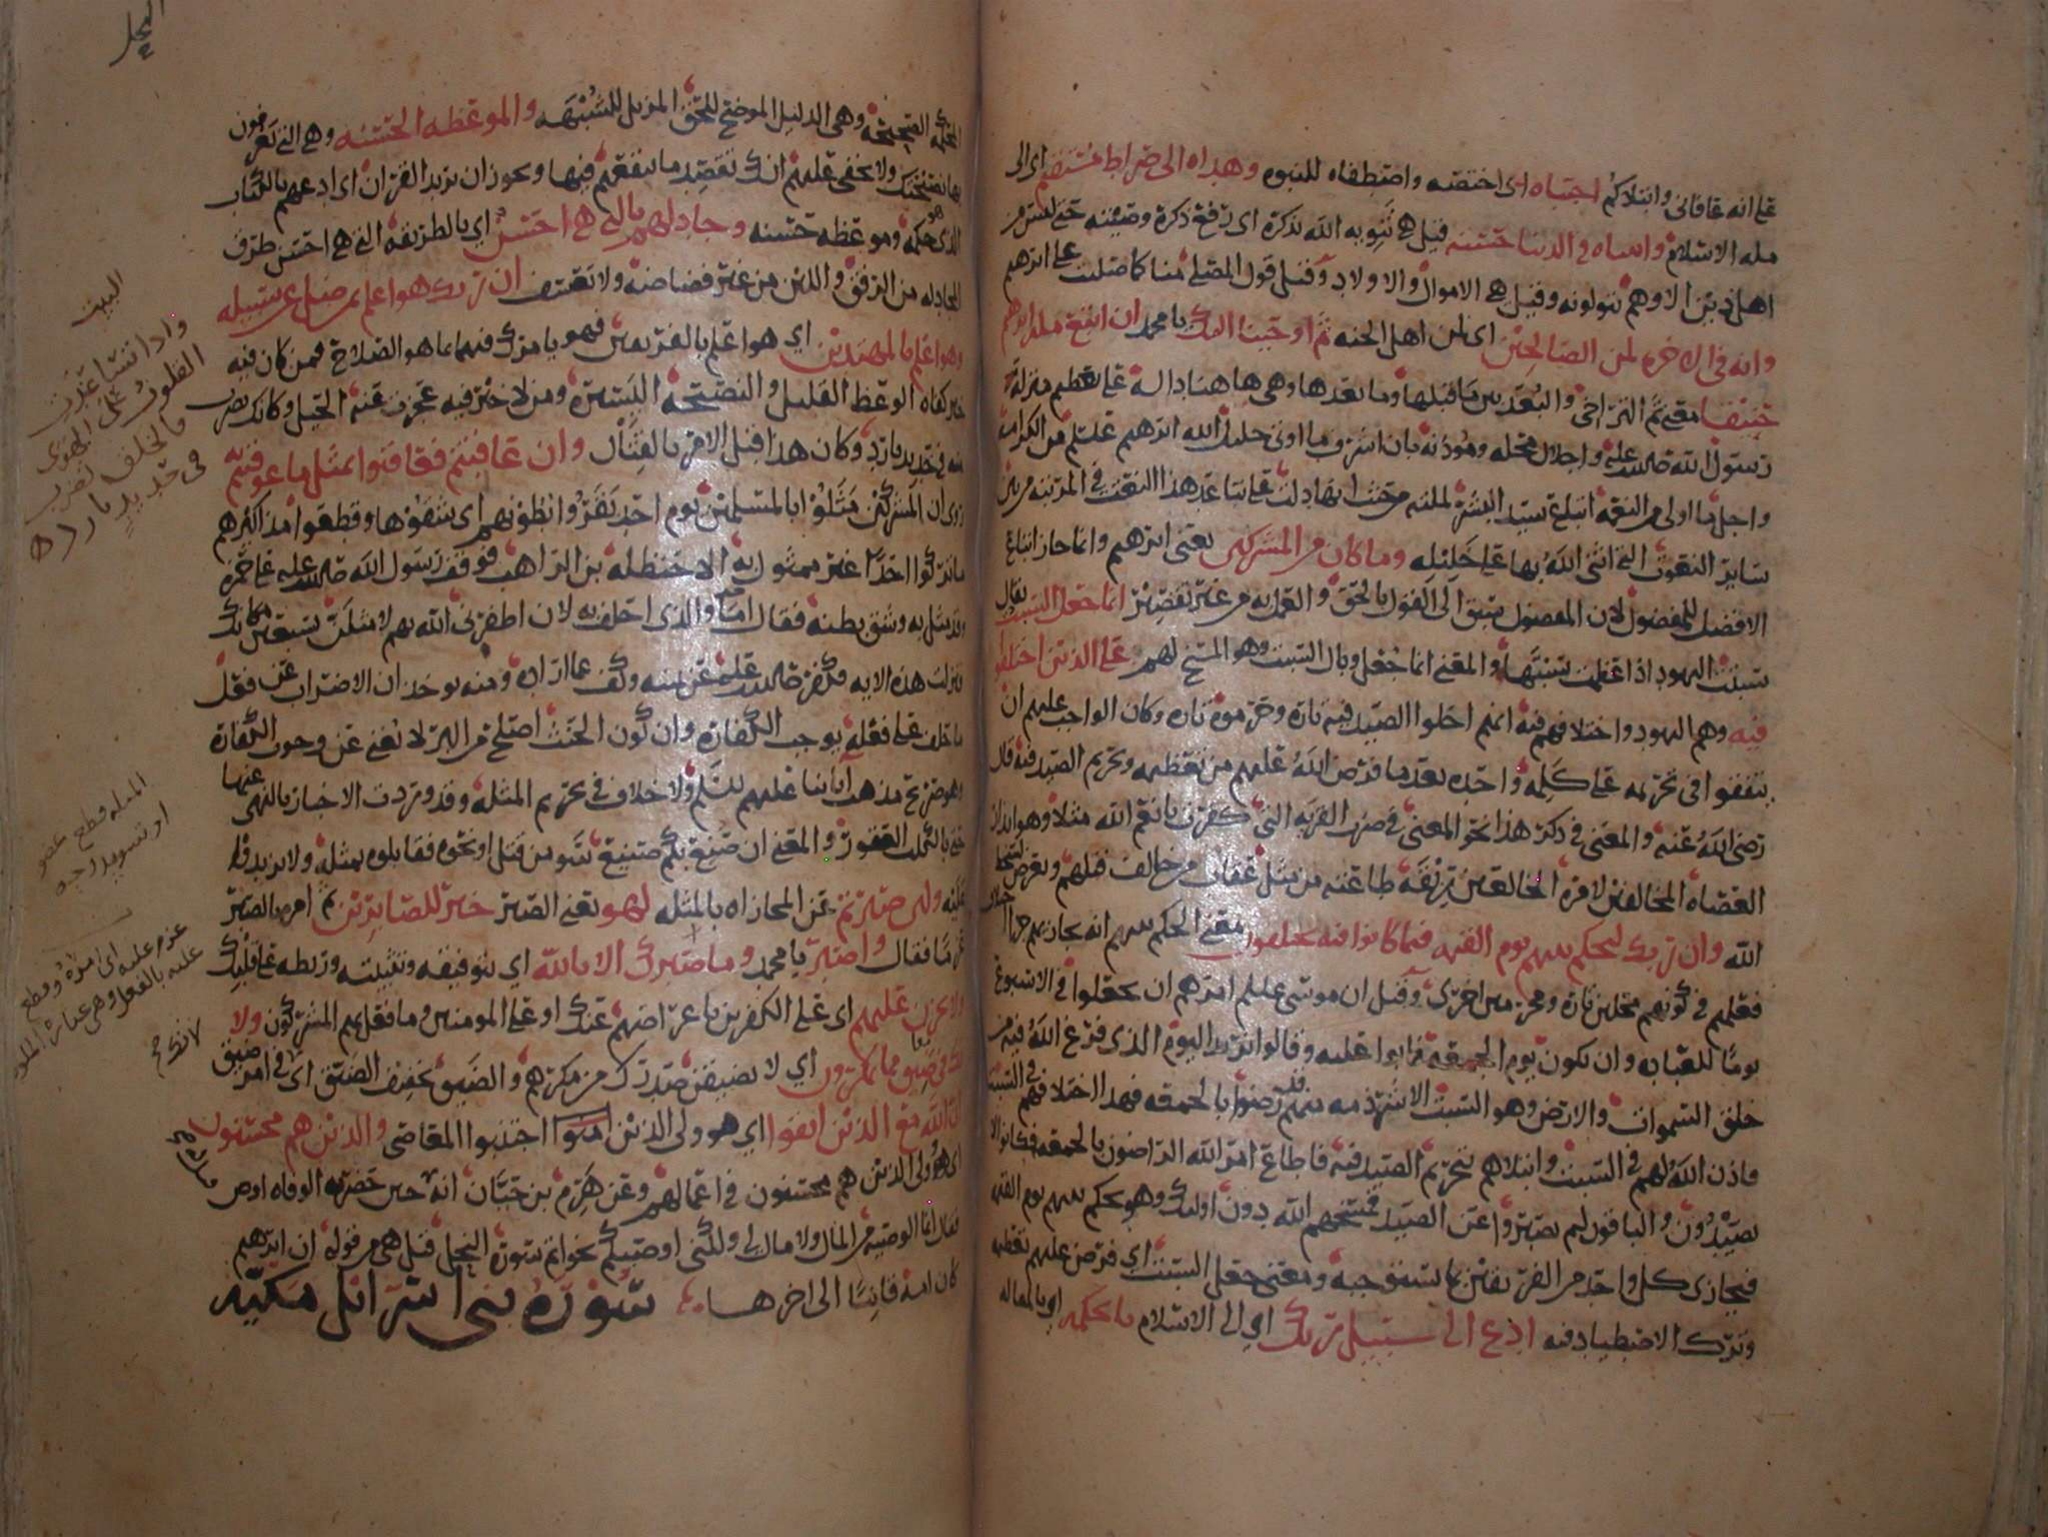 على انه عافانى وابتلاكم اجتباه اى اختصه واصطفاه للنبوه وهداه الى صراط مستقيم اى الى
مله الاسلام واتيناه فى الدنيا حسنه قيل هى تنويه الله بذكره اى رفع ذكره وصيته حتى ليس من
اهل دين الا وهم يتولونه وقيل هى الاموال والاولاد وقيل قول المصلى منا كما صليت على ابرهيم
وانه فى الاخره لمن الصالحين اى لمن اهل الجنه ثم اوحينا اليك يا محمد ان اتبع مله ابرهيم
حنيفا معنى ثم التراخى والبعد بين ما قبلها وما بعدها وهى هاهنا داله على تعظيم منزله
رسول الله صلى الله عليه واجلال محله وموذنه بان اشرف ما اوتى خليل الله ابرهيم عليلم من الكرامه
واجل ما اولى من النعمه اتباع سيد البشر لملته من حيث انها دلت على تباعد هذا النعت فى المرتبه من بين
ساير النعوت التى اثنى الله بها على خليله وما كان من المشركين يعنى ابرهيم وانما جاز اتباع
الافضل للمفضول لان المفضول سبق الى القول بالحق والعمل به من غير تقصير انما جعل السبت يقال
سبتت اليهود اذا عظمت سبتها والمعنى انما جعل وبال السبت وهو المسخ لهم على الذين اختلفوا
فيه وهم اليهود واختلافهم فيه انهم احلوا الصيد فيه تاره وحرموه تاره وكان الواجب عليهم ان
يتفقوا فى تحريمه على كلمه واحده بعد ما فرض الله عليهم من تعظيمه وتحريم الصيد فيه قال
رضى الله عنه والمعنى فى ذكر هذا نحو المعنى فى ضرب القريه التى كفرت بانعم الله مثلا وهو انذار
العصاه المخالفين لامره الخالعين ربقه طاعته من مثل عقاب من خالف قبلهم وتعرض لسخط
الله وان ربك ليحكم بينهم يوم القيمه فيما كانوا فيه يختلفون معنى الحكم بينهم انه يجازيهم جزا اختلاف
فعلهم فى كونهم محلين تاره ومحرمين اخرى وقيل ان موسى عليلم امرهم ان يجعلوا فى الاسبوع
يوما للعباده وان يكون يوم الجمعه فابوا عليه وقالوا نريد اليوم الذى فرغ الله فيه من
خلق السموات والارض وهو السبت الا شرذمه منهم قد رضوا بالجمعه فهذا اختلافهم فى السبت
فاذن الله لهم فى السبت وابتلاهم بتحريم الصيد فيه فاطاع امر الله الراضون بالجمعه فكانوا لا
يصيدون والباقون لم يصبروا عن الصيد فمسخهم الله دون اوليك وهو يحكم بينهم يوم القيمه
فيجازى كل واحد من الفريقين بما يستوجبه ومعنى جعل السبت اى فرض عليهم تعظيمه
وترك الاصطياد فيه ادع الى سبيل ربك اى الى الاسلام بالحكمه اى بالمقاله
النحل
المحكمه الصحيحه وهى الدليل الموضح للحق المزيل للشبهه والموعظه الحسنه وهى التى يعرفون
بها نصحك ولا يخفى عليهم انك تقصد ما ينفعهم فيها ويجوز ان يريد القران اى ادعهم بالكتاب
الذى هو حكمه وموعظه حسنه وجادلهم بالتى هى احسن اى بالطريقه التى هى احسن طرق
المجادله من الرفق واللين من غير فضاضه ولا تعنيف ان ربك هو اعلم بمن ضل عن سبيله
وهو اعلم بالمهتدين اى هو اعلم بالفريقين فهو يامرك فيهما بما هو الصلاح فمن كان فيه
خير كفاه الوعظ القليل والنصيحه اليسيره ومن لا خير فيه عجزت عنه الحيل وكانك تضرب
منه فى حديد بارد وكان هذا قبل الامر بالقتال وان عاقبتم فعاقبوا بمثل ما عوقبتم
روى ان المشركين مثلوا بالمسلمين يوم احد بقروا بطونهم اى شقوها وقطعوا مذاكيرهم
ما تركوا احدا غير ممثول به الا حنظله بن الراهب فوقف رسول الله صلى الله عليه على حمزه
وقد مثل به وشق بطنه فقال اما والذى احلف به لان اظفرنى الله بهم لامثلن بسبعين مكانك
فنزلت هذه الايه فكفر صلى الله عليه عن يمينه وكف عما اراده ومنه يوخذ ان الاضراب عن فعل
ما حلف على فعله يوجب الكفاره وان كون الحنث اصلح من البر لا يغنى عن وجوب الكفاره
وهو صريح مذهب ابائنا عليهم السلم ولا خلاف فى تحريم المثله وقد وردت الاخبار بالنهى عنها
حتى بالكلب العقور والمعنى ان صنع بكم صنيع سو من قتل او نحوه فقابلوه بمثله ولا تزيدوا
عليه ولئن صبرتم عن المجازاه بالمثله لهو يعنى الصبر خير للصابرين ثم امره بالصبر
عزما فقال واصبر يا محمد وما صبرك الا بالله اى بتوفيقه وتثبيته وربطه على قلبك
ولا تحزن عليهم اى على الكفرين باعراضهم عنك او على المومنين وما فعل بهم المشركون ولا
تك فى ضيق مما يمكرون اى لا يضيقن صدرك من مكرهم والضيق تخفيف الضيق اى فى امر ضيق
ان الله مع الذين اتقوا اى هو ولى الذين اجتنبوا المعاصى والذين هم محسنون
اى هو ولى الذين هم محسنون فى اعمالهم وعن هرم بن حيان انه حين حضرته الوفاه اوص
فقال انما الوصيه من المال ولا مال لى ولكنى اوصيكم بخواتم سوره النحل قيل هى من قوله ان ابرهيم
كان امه قانتا الى اخرها سوره بنى اسرائل مكيه
البيت
واذا تشاغرت
القلوب على الهوى
فالخلف تضرب
فى حديد بارد
المثله قطع عضو
او تسويد وجه
عزم عليه اى امره وقطع
عليه بالفعل وهى عباره